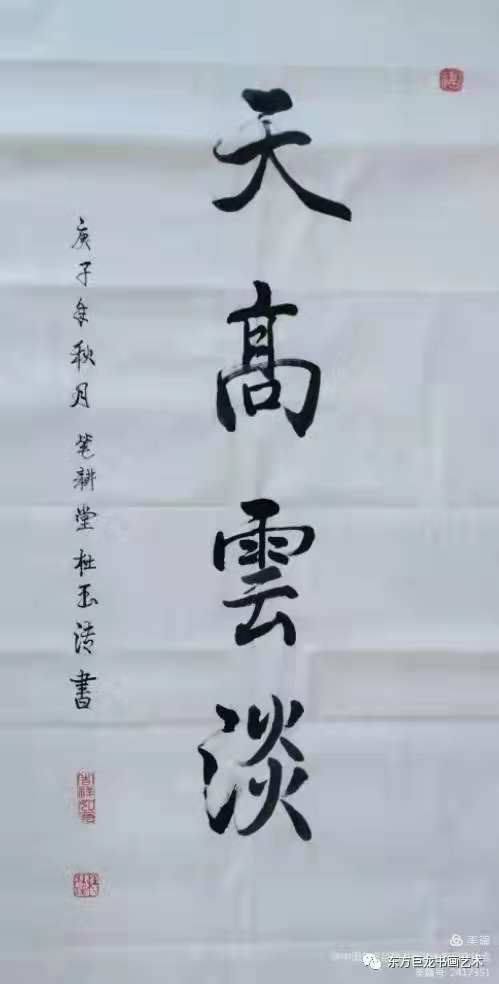 天高雲淡
庚子年秋月 笔耕堂 杜玉清書
美篇
东方巨龙书画艺术
美篇号: 2417351